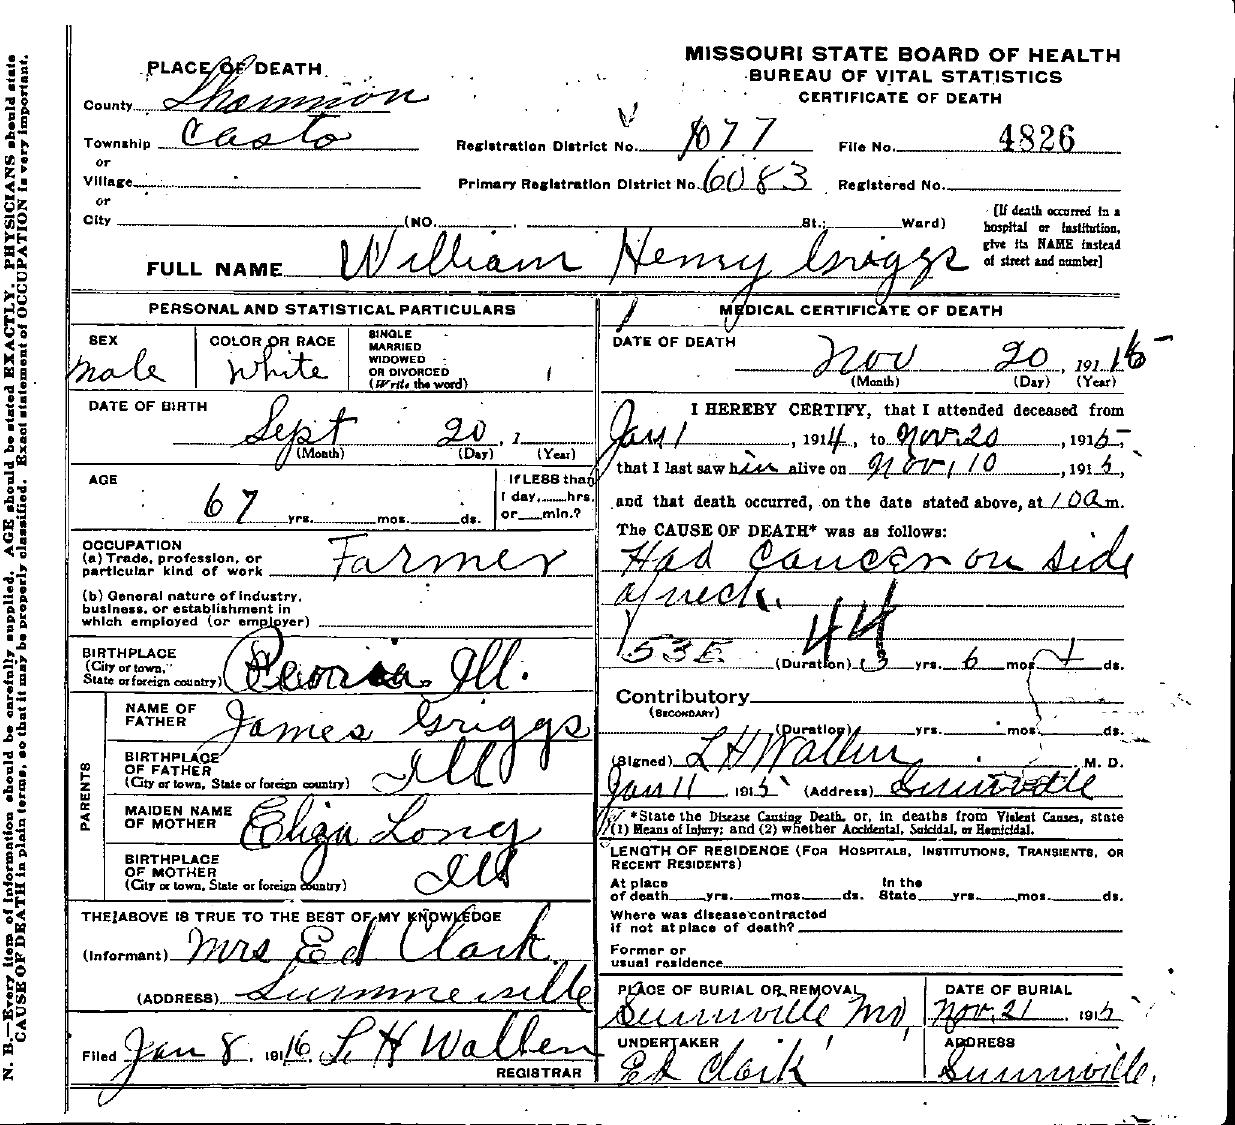 MISSOURI STATE BOARD OF HEALTH
BUREAU OF VITAL STATISTICS
CERTIFICATE OF DEATH
PLACE OF DEATH
County Shannon
Township Casto
or
Village
or
City (NO. St.; Ward)
Registration District No. 1077 File No. 4826
Primary Registration District No. 6083 Registered No.
[If death occurred in a
hospital or institution,
give its NAME instead
of street and number]
FULL NAME William Henry Griggs
PERSONAL AND STATISTICAL PARTICULARS
SEX
male
COLOR OR RACE
White
SINGLE
MARRIED
WIDOWED
OR DIVORCED
(Write the word)
DATE OF BIRTH
Sept 20, 1
(Month) (Day) (Year)
AGE
67 yrs. mos. ds.
If LESS than
1 day, hrs.
or min.?
OCCUPATION
(a) Trade, profession, or
particular kind of work Farmer
(b) General nature of industry,
business, or establishment in
which employed (or employer)
BIRTHPLACE
(City or town,
State or foreign country) Peoria Ill.
PARENTS
NAME OF
FATHER James Griggs
BIRTHPLACE
OF FATHER Ill
(City or town, State or foreign country)
MAIDEN NAME
OF MOTHER Eliza Long
BIRTHPLACE
OF MOTHER Ill
(City or town, State or foreign country)
THE ABOVE IS TRUE TO THE BEST OF MY KNOWLEDGE
(Informant) Mrs Ed Clark
(ADDRESS) Summersville
Filed Jan 8, 1916 L H Wallen
REGISTRAR
MEDICAL CERTIFICATE OF DEATH
DATE OF DEATH
Nov 20, 191
(Month) (Day) (Year)
I HEREBY CERTIFY, that I attended deceased from
Jan 1, 1914, to Nov. 20, 1915,
that I last saw him alive on Nov, 10, 1915,
and that death occurred, on the date stated above, at 10 a m.
The CAUSE OF DEATH* was as follows:
Had Cancer on side
of neck.
53E 44
(Duration) 3 yrs. 6 mos. ds.
Contributory
(SECONDARY)
(Duration) yrs. mos. ds.
(Signed) L H Wallen M. D.
Jan 11, 191 (Address) Sumville
*State the Disease Causing Death, or, in deaths from Violent Causes, state
(1) Means of Injury; and (2) whether Accidental, Suicidal, or Homicidal.
LENGTH OF RESIDENCE (FOR HOSPITALS, INSTITUTIONS, TRANSIENTS, OR
RECENT RESIDENTS)
At place In the
of death yrs. mos. ds. State yrs. mos. ds.
Where was disease contracted
if not at place of death?
Former or
usual residence
PLACE OF BURIAL OR REMOVAL
Sumville Mo,
DATE OF BURIAL
Nov. 21, 1915
UNDERTAKER
Ed Clark
ADDRESS
Sumville,
N. B.—Every item of information should be carefully supplied. AGE should be stated EXACTLY. PHYSICIANS should state
CAUSE OF DEATH in plain terms, so that it may be properly classified. Exact statement of OCCUPATION is very important.